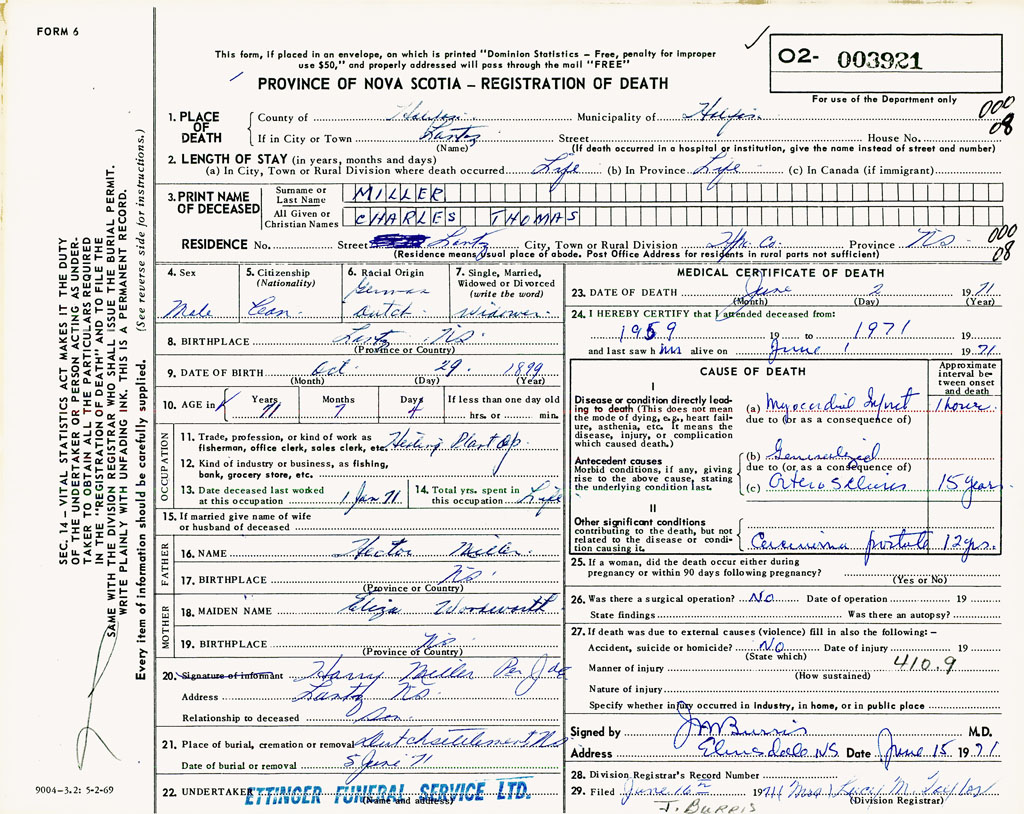 FORM 6
This form, if placed in an envelope, on which is printed "Dominion Statistics – Free, penalty for improper
use $50," and properly addressed will pass through the mail "FREE"
PROVINCE OF NOVA SCOTIA – REGISTRATION OF DEATH
O2- 003921
For use of the Department only
000
08
1. PLACE OF DEATH
County of Halifax Municipality of Halifax
If in City or Town Lantz Street House No.
(Name) (If death occurred in a hospital or institution, give the name instead of street and number)
2. LENGTH OF STAY (in years, months and days)
(a) In City, Town or Rural Division where death occurred Life (b) In Province Life (c) In Canada (if immigrant)
3. PRINT NAME OF DECEASED
Surname or Last Name MILLER
All Given or Christian Names CHARLES THOMAS
RESIDENCE No. Street Lantz City, Town or Rural Division Hfx Co. Province NS
000
08
(Residence means usual place of abode. Post Office Address for residents in rural parts not sufficient)
4. Sex
Male
5. Citizenship
(Nationality)
Can.
6. Racial Origin
German
Dutch
7. Single, Married,
Widowed or Divorced
(write the word)
Widower
8. BIRTHPLACE Lantz NS
(Province or Country)
9. DATE OF BIRTH Oct. 29. 1899
(Month) (Day) (Year)
10. AGE in Years 71 Months 7 Days 4 If less than one day old
hrs. or min.
OCCUPATION
11. Trade, profession, or kind of work as
fisherman, office clerk, sales clerk, etc. Heating Plant Op.
12. Kind of industry or business, as fishing,
bank, grocery store, etc.
13. Date deceased last worked
at this occupation 1 Jan 71
14. Total yrs. spent in
this occupation Life
15. If married give name of wife
or husband of deceased
FATHER
16. NAME Hector Miller.
17. BIRTHPLACE NS.
(Province or Country)
MOTHER
18. MAIDEN NAME Eliza Wordsworth
19. BIRTHPLACE NS.
(Province or Country)
20. Signature of informant Harry Miller Per
Address Lantz NS.
Relationship to deceased Son.
21. Place of burial, cremation or removal Dutch settlement NS
Date of burial or removal 5 June 71
22. UNDERTAKER ETTINGER FUNERAL SERVICE LTD.
(Name and address)
MEDICAL CERTIFICATE OF DEATH
23. DATE OF DEATH June 2 1971
(Month) (Day) (Year)
24. I HEREBY CERTIFY that I attended deceased from:
1959 19 to 1971 19
and last saw him alive on June 1 1971
CAUSE OF DEATH
Approximate
interval be-
tween onset
and death
I
Disease or condition directly lead-
ing to death (This does not mean
the mode of dying, e.g., heart fail-
ure, asthenia, etc. It means the
disease, injury, or complication
which caused death.)
(a) Myocardial Infarct 1 hour.
due to (or as a consequence of)
Antecedent causes
Morbid conditions, if any, giving
rise to the above cause, stating
the underlying condition last.
(b) Generalized
due to (or as a consequence of)
(c) Arteriosclerosis 15 years
II
Other significant conditions
contributing to the death, but not
related to the disease or condi-
tion causing it.
Carcinoma prostate 12 yrs.
25. If a woman, did the death occur either during
pregnancy or within 90 days following pregnancy?
(Yes or No)
26. Was there a surgical operation? No Date of operation 19
State findings Was there an autopsy?
27. If death was due to external causes (violence) fill in also the following: –
Accident, suicide or homicide? No Date of injury 19
(State which)
Manner of injury 410.9
(How sustained)
Nature of injury
Specify whether injury occurred in industry, in home, or in public place
Signed by J M Burris M.D.
Address Elmsdale NS Date June 15 1971
28. Division Registrar's Record Number
29. Filed June 16th 1971 Miss Lucy M. Taylor
(Division Registrar)
J. BURRIS
SEC. 14 – VITAL STATISTICS ACT MAKES IT THE DUTY
OF THE UNDERTAKER OR PERSON ACTING AS UNDER-
TAKER TO OBTAIN ALL THE PARTICULARS REQUIRED
IN THE "REGISTRATION OF DEATH" AND TO FILE THE
SAME WITH THE DIVISION REGISTRAR WHO SHALL ISSUE THE BURIAL PERMIT.
WRITE PLAINLY WITH UNFADING INK. THIS IS A PERMANENT RECORD.
Every item of information should be carefully supplied. (See reverse side for instructions.)
9004-3.2: 5-2-69